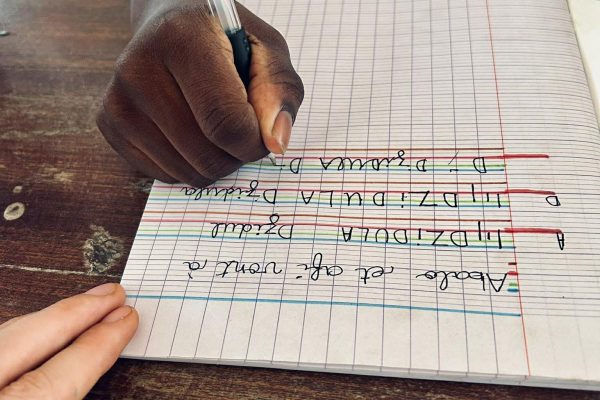 Abalo et afi vont à
A DZiDULA Dzidul
D DZiDULA Dzidula
D DziDULA